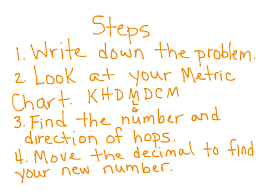 Steps
1. Write down the problem.
2. Look at your Metric
Chart. KHDMDCM
L
G
3. Find the number and
direction of hops.
4. Move the decimal to find
your new number.